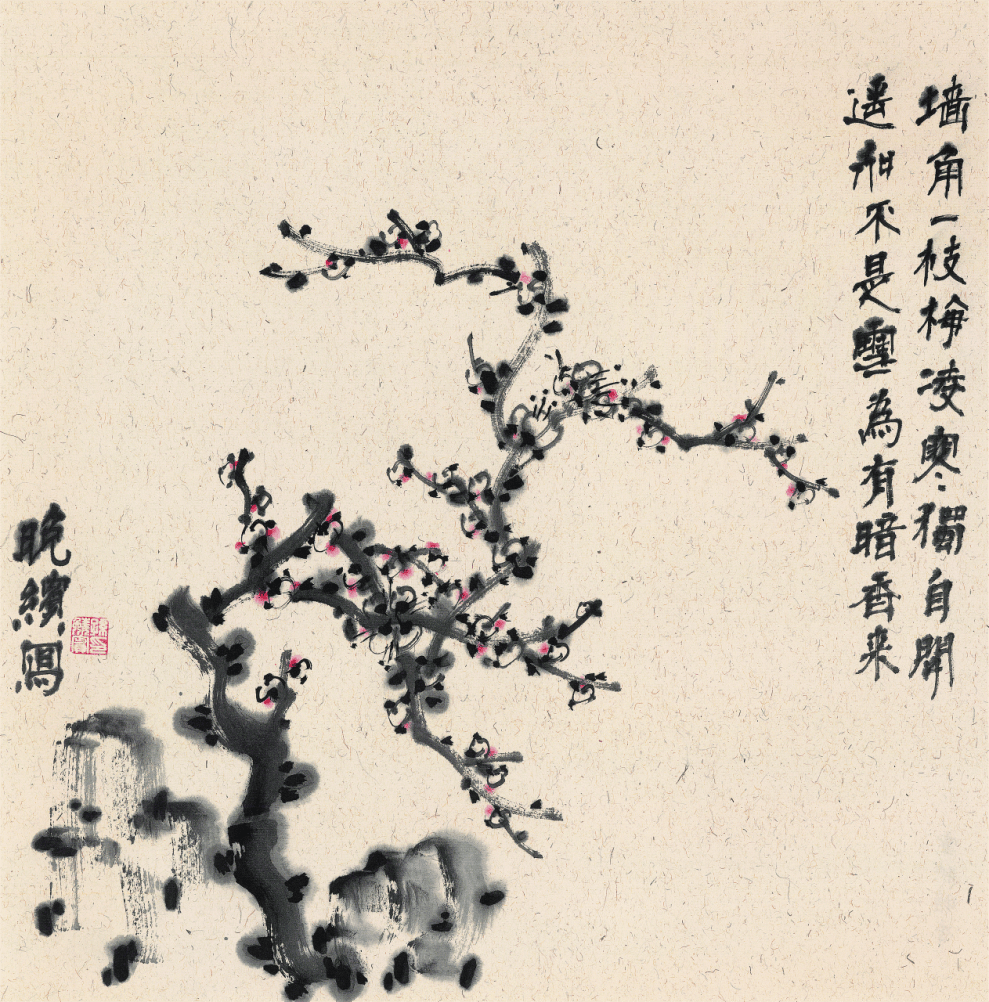 墙角一枝梅凌寒獨自開
遥知不是雪為有暗香来
晚繽寫